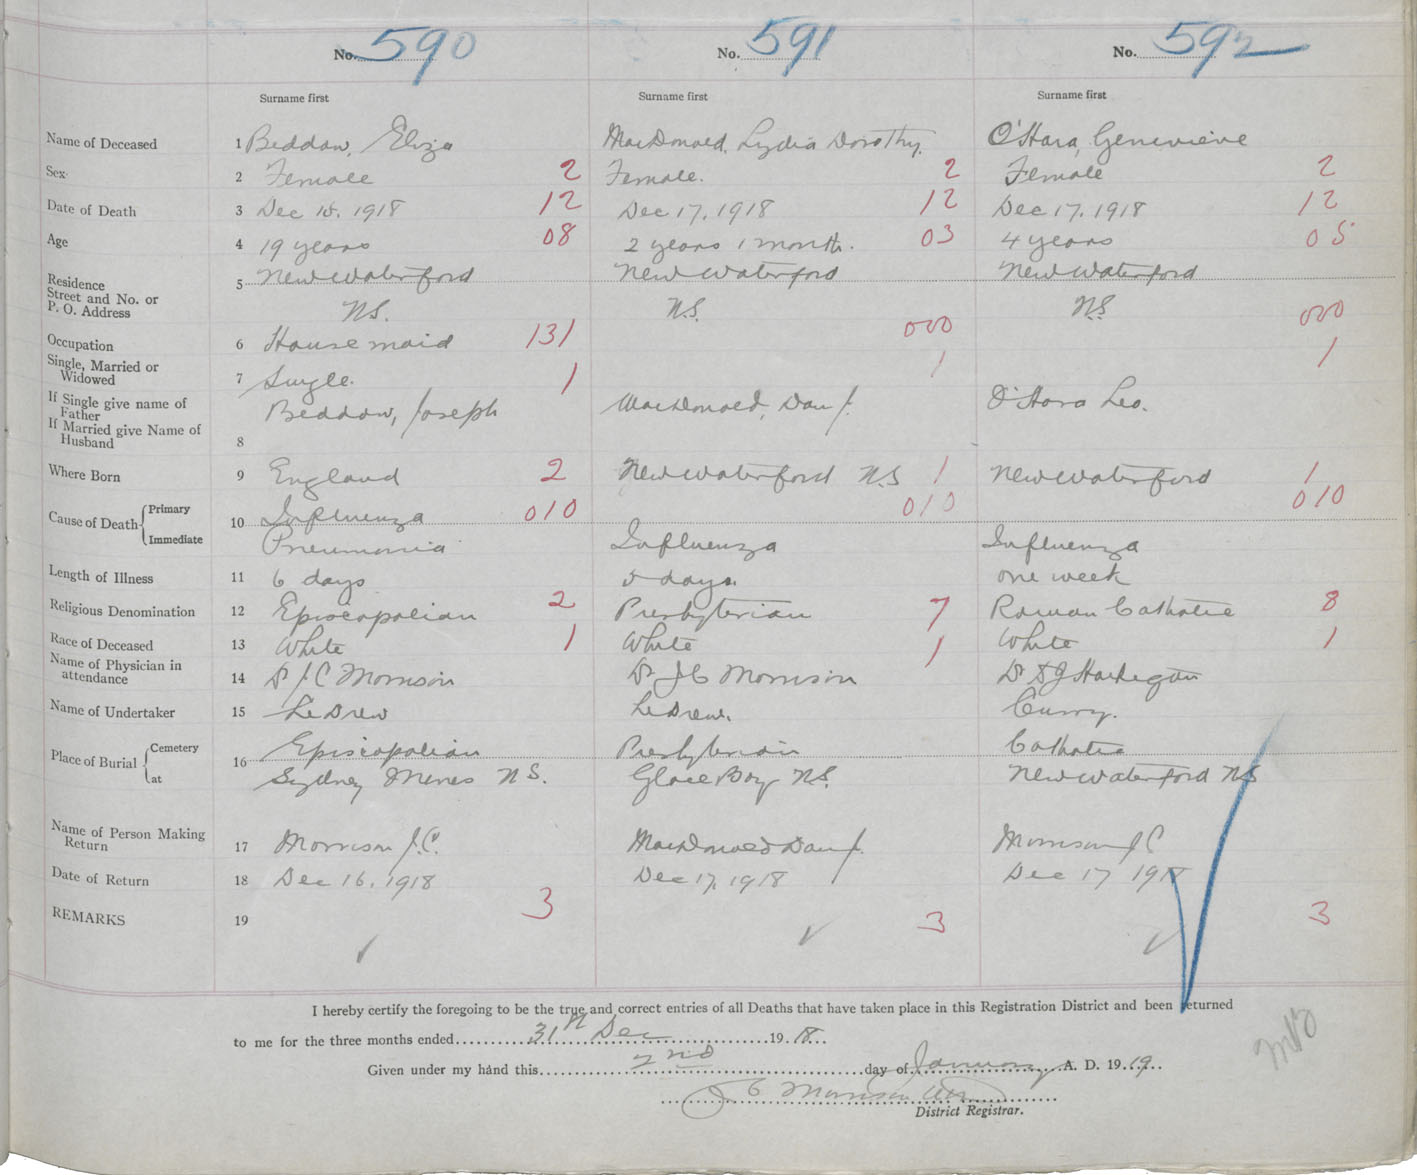 No. 590 No. 591 No. 592
Surname first Surname first Surname first
Name of Deceased 1 Beddow, Eliza MacDonald, Lydia Dorothy. O'Hara, Genevieve
Sex 2 Female 2 Female. 2 Female 2
Date of Death 3 Dec 1918 12 Dec 17, 1918 12 Dec 17, 1918 12
Age 4 19 years 08 2 years 1 month. 03 4 years 05
Residence 5 New Waterford New Waterford New Waterford
Street and No. or
P. O. Address N.S. N.S. 000 N.S. 000
Occupation 6 House maid 131
Single, Married or
Widowed 7 Single. 1 1 1
If Single give name of
Father Beddow, Joseph MacDonald, Dan J. O'Hara Leo.
If Married give Name of
Husband 8
Where Born 9 England 2 New Waterford N.S 1 New Waterford 1
Cause of Death Primary 10 Influenza 010 010 010
Immediate Pneumonia Influenza Influenza
Length of Illness 11 6 days 5 days. one week
Religious Denomination 12 Episcopalian 2 Presbyterian 7 Roman Catholic 8
Race of Deceased 13 White 1 White 1 White 1
Name of Physician in
attendance 14 Dr J.C Morrison Dr J C Morrison Dr
Name of Undertaker 15 LeDrew LeDrew. Curry.
Place of Burial Cemetery 16 Episcopalian Presbyterian Catholic
at Sydney Mines N.S. Glace Bay N.S. New Waterford N.S
Name of Person Making
Return 17 Morrison J.C. MacDonald Dan J. Morrison J C
Date of Return 18 Dec 16, 1918 Dec 17, 1918 Dec 17 1918
REMARKS 19 3 3 3
I hereby certify the foregoing to be the true and correct entries of all Deaths that have taken place in this Registration District and been returned
to me for the three months ended 31st Dec 1918
Given under my hand this 2nd day of January A. D. 1919
J C Morrison
District Registrar.